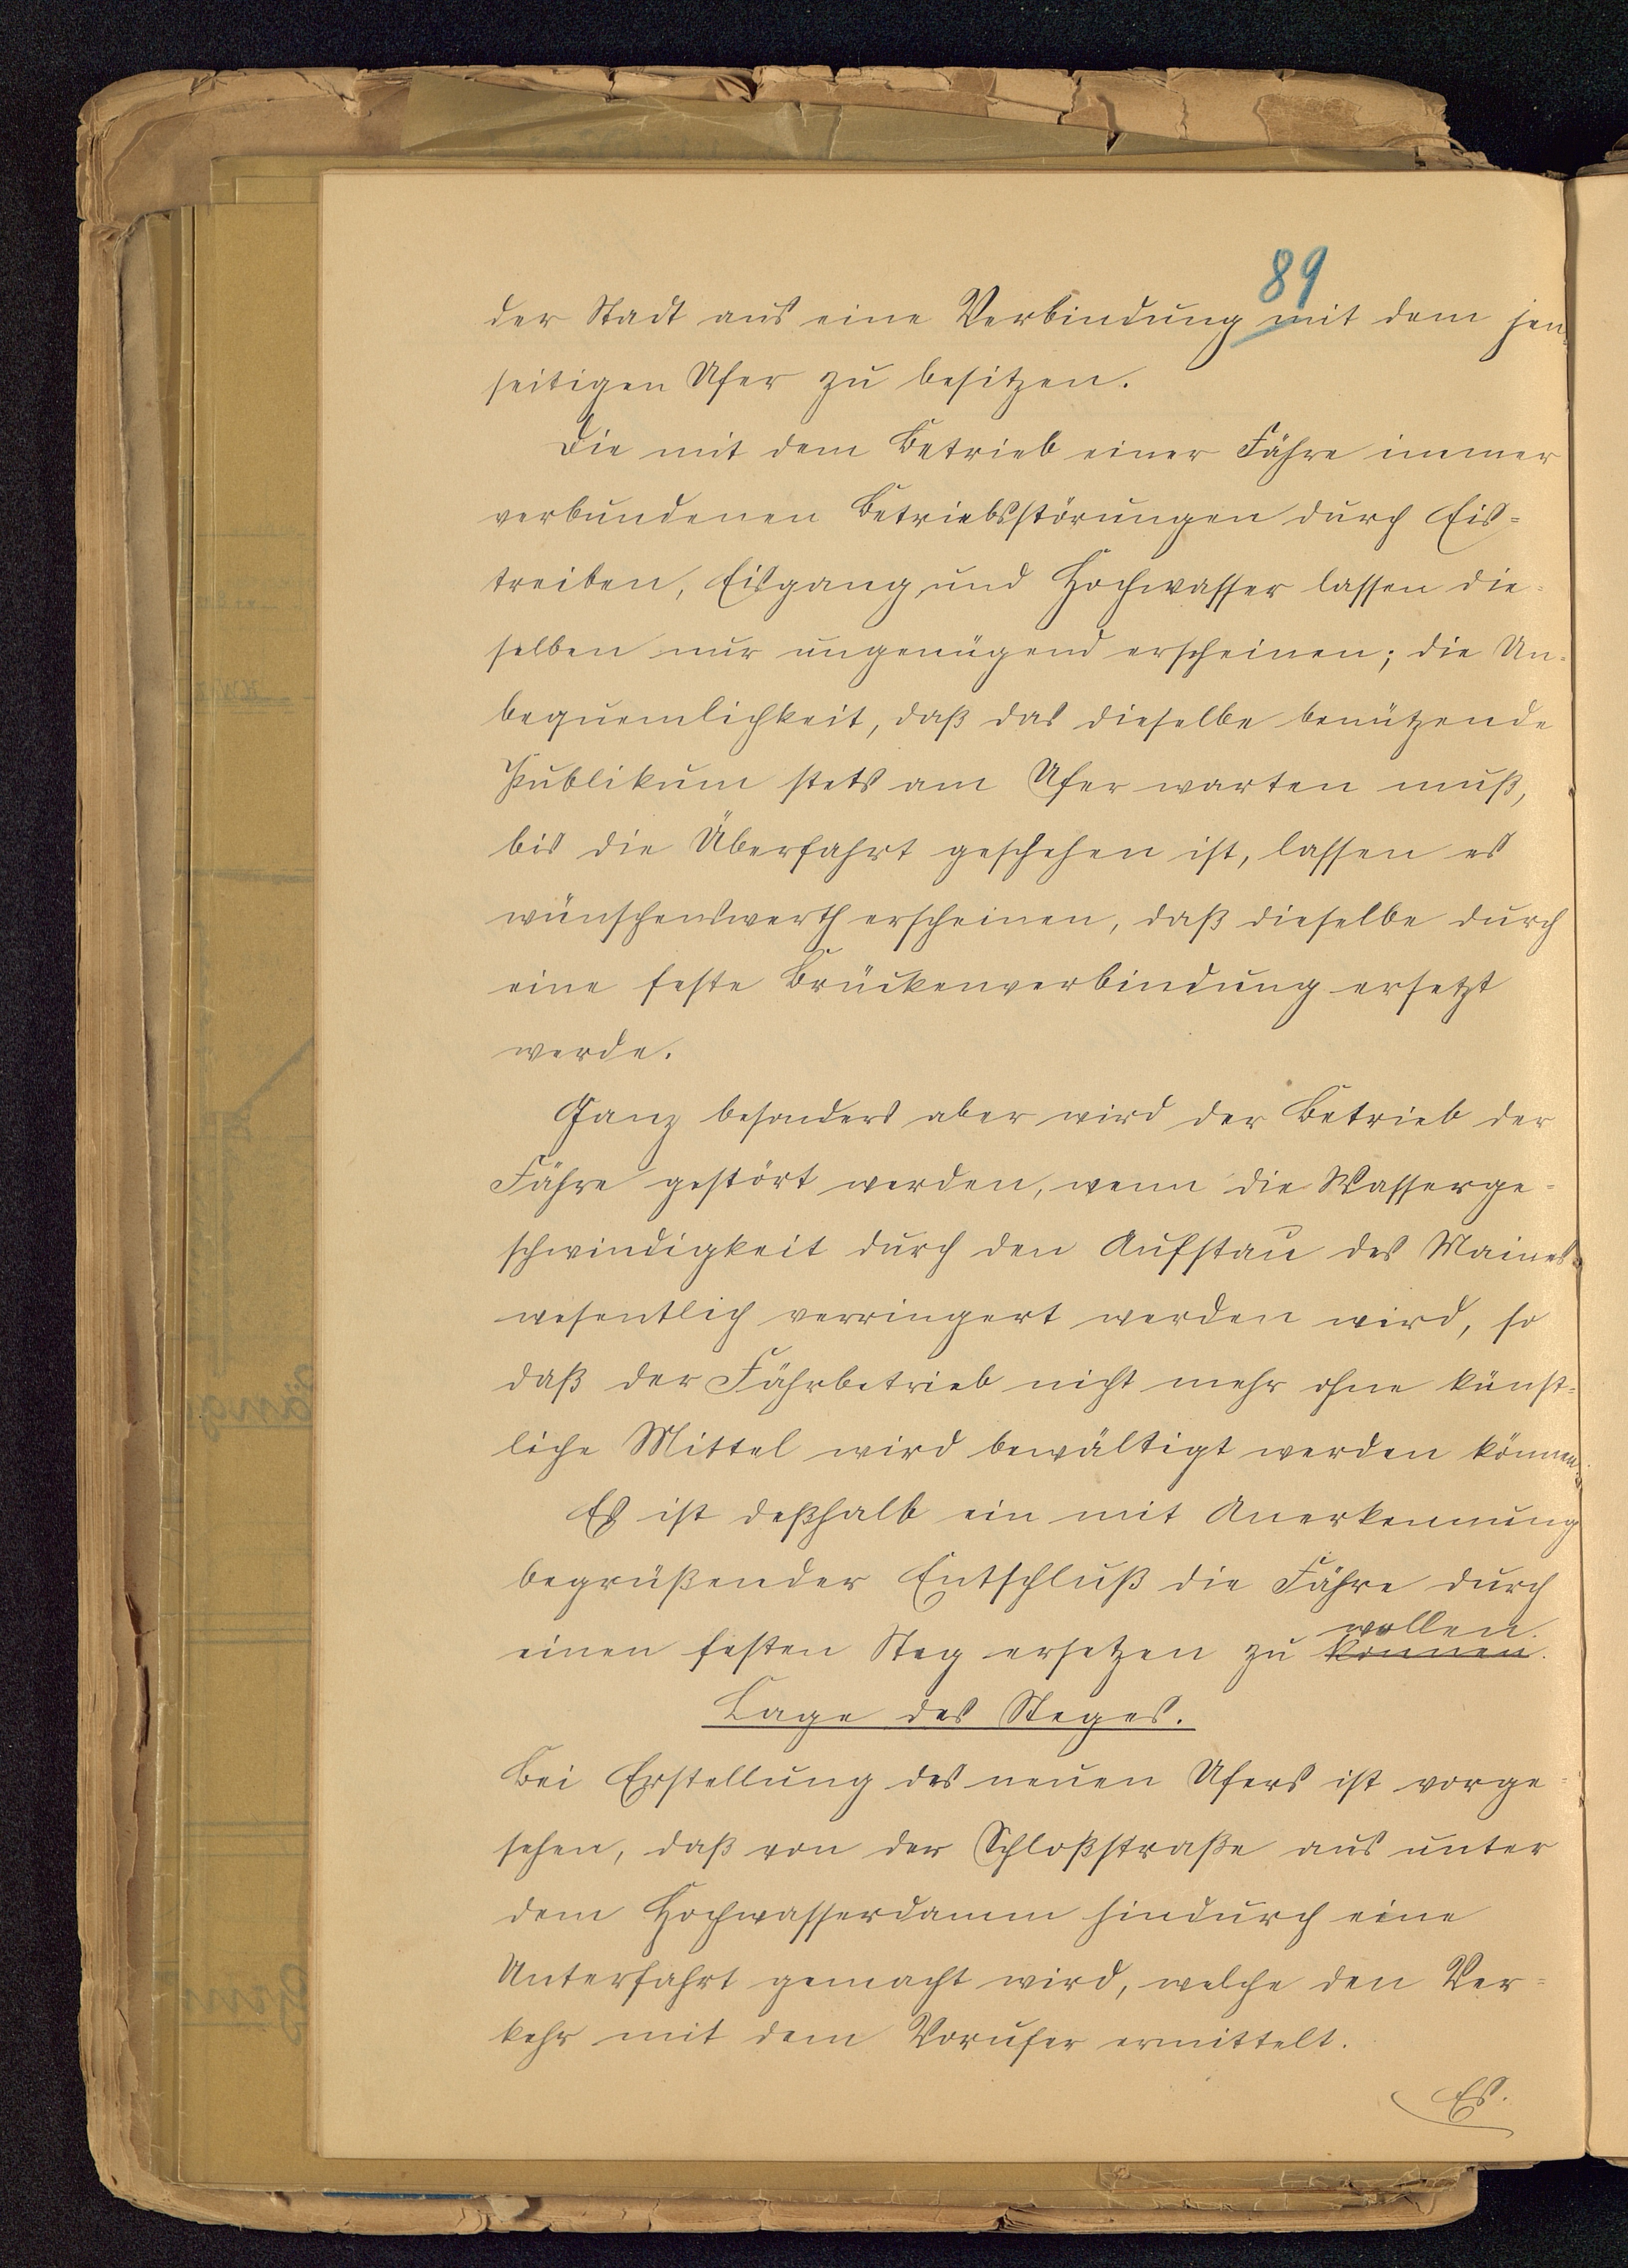 89
der Stadt aus eine Verbindung mit dem jen-
seitigen Ufer zu besitzen.
Die mit dem Betrieb einer Fähre immer
verbundenen Betriebsstörungen durch Eis=
treiben, Eisgang und Hochwasser lassen die=
selben nur ungenügend erscheinen; die Un=
bequemlichkeit, daß das dieselbe benützende
Publikum stets am Ufer warten muß,
bis die Überfahrt geschehen ist, lassen es
wünschenswerth erscheinen, daß dieselbe durch
eine feste Brückenverbindung ersetzt
werde.
Ganz besonders aber wird der Betrieb der
Fähre gestört werden, wenn die Wasserge=
schwindigkeit durch den Aufstau des Maines
wesentlich verringert werden wird, so
daß der Fährbetrieb nicht mehr ohne künst=
liche Mittel wird bewältigt werden können.
Es ist deßhalb ein mit Anerkennung
begrüßender Entschluß die Fähre durch
wollen.
einen festen Steg ersetzen zu können.
Lage des Steges.
Bei Erstellung des neuen Ufers ist vorge=
sehen, daß von der Schloßstraße aus unter
dem Hochwasserdamm hindurch eine
Unterfahrt gemacht wird, welche den Ver=
kehr mit dem Vorufer ermittelt.
Es.